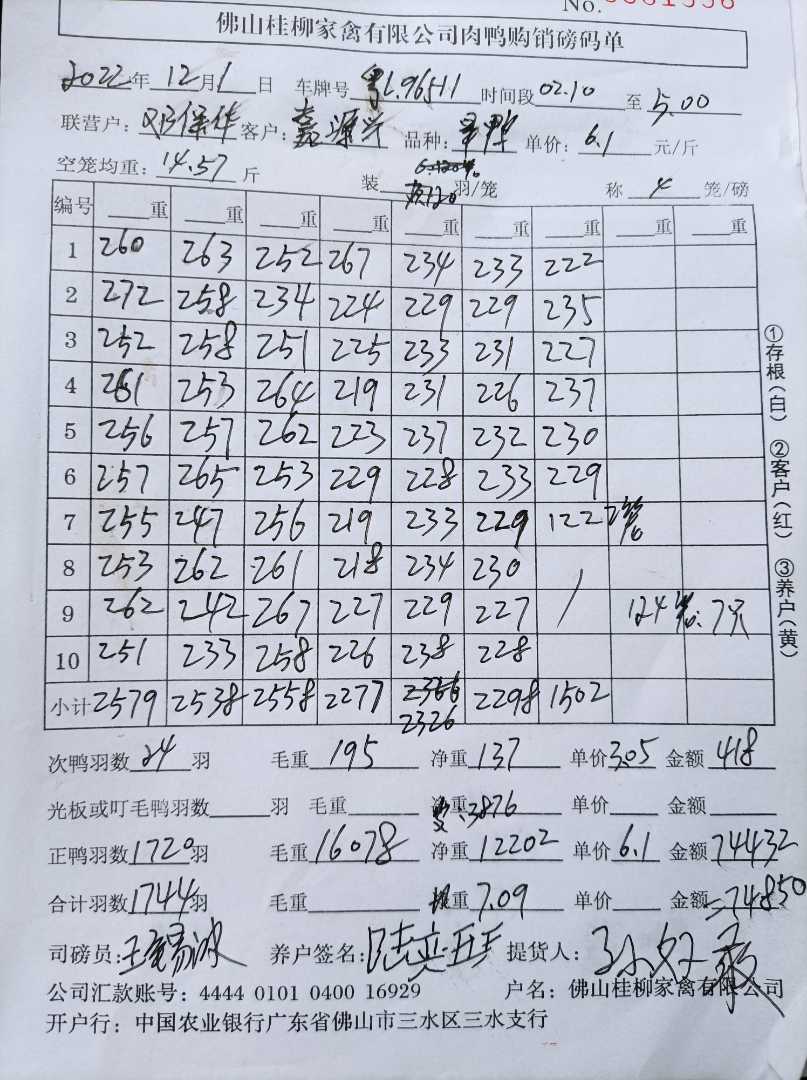 No.
佛山桂柳家禽有限公司肉鸭购销磅码单
2022年 12月1日 车牌号 粤L96511 时间段 02.10 至 5.00
联营户: 邓保华 客户: 鑫源兴 品种: 单价: 6.1 元/斤
空笼均重: 14.57 斤 装 羽/笼 称 4 笼/磅
编号 重 重 重 重 重 重 重 重 重
1 260 263 252 267 234 233 222
2 272 258 234 224 229 229 235
3 252 258 251 225 233 231 227
4 261 253 264 219 231 226 237
5 256 257 262 223 237 232 230
6 257 265 253 229 228 233 229
7 255 247 256 219 233 229 122 2笼
8 253 262 261 218 234 230
9 262 242 267 227 229 227 / 124笼: 7只
10 251 233 258 226 238 228
小计 2579 2538 2558 2277 2326 2298 1502
次鸭羽数 24 羽 毛重 195 净重 137 单价 3.05 金额 418
光板或叮毛鸭羽数 羽 毛重 净重 3876 单价 金额
正鸭羽数 1720 羽 毛重 16078 净重 12202 单价 6.1 金额 74432
合计羽数 1744 羽 毛重 重 7.09 单价 金额 =74850
司磅员: 养户签名: 提货人:
公司汇款账号: 4444 0101 0400 16929 户名: 佛山桂柳家禽有限公司
开户行: 中国农业银行广东省佛山市三水区三水支行
①存根(白) ②客户(红) ③养户(黄)